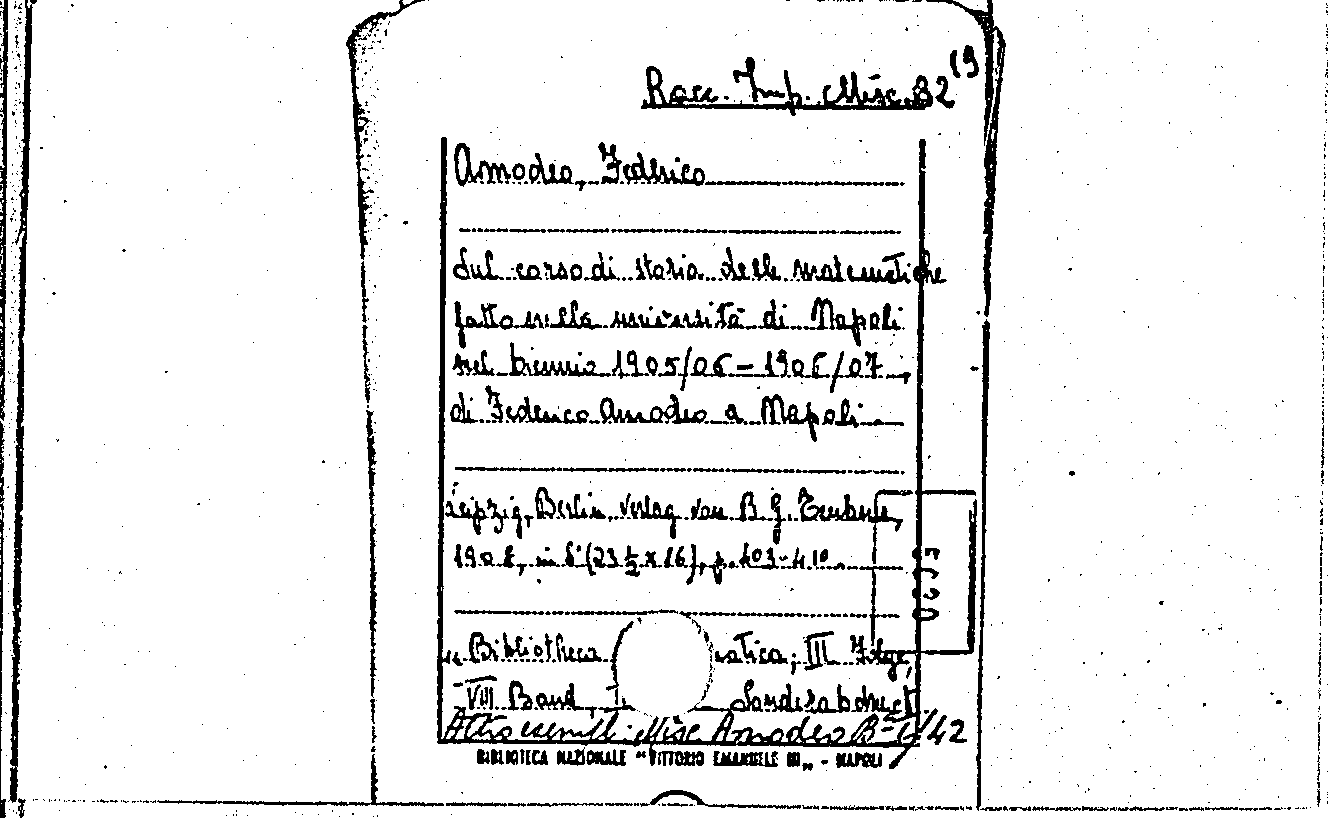 Racc. Imp. Misc. B2 19
Amodeo, Federico
Sul corso di storia delle matematiche
fatto nella università di Napoli
nel biennio 1905/06 - 1906/07,
di Federico Amodeo a Napoli.
Leipzig, Berlin, Verlag von B. G. Teubner,
1908, in 8° (23 ½ x 16), p. 403-410.
Bibliotheca atica; III Folge,
VIII Band, Sonderabdruck
Altro esempl: Misc Amodeo B 6/42
BIBLIOTECA NAZIONALE "VITTORIO EMANUELE III" - NAPOLI